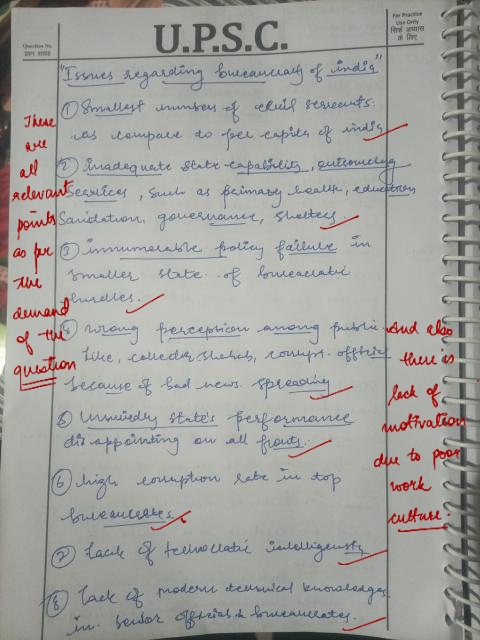 Question No.
प्रश्न संख्या
U.P.S.C.
For Practice
Use Only
सिर्फ अभ्यास
के लिए
"Issues regarding bureaucracy of india"
① Smallest numbers of civil servants
as compare to per capita of india
② inadequate state capability, outsourcing
services, such as primary health, education
Sanitation, governance, shelters.
③ innumerable policy failure in
smaller state of bureaucratic
hurdles.
④ wrong perception among public
like, collector shahab, corrupt official
because of bad news spreading
⑤ state's performance
disappointing on all fronts.
⑥ high corruption rate in top
bureaucrates.
⑦ Lack of technocratic
⑧ lack of modern technical knowledge
in senior officials & bureaucrates.
These
are
all
relevant
points
as per
the
demand
of the
question
And also
there is
lack of
motivation
due to poor
work
culture.